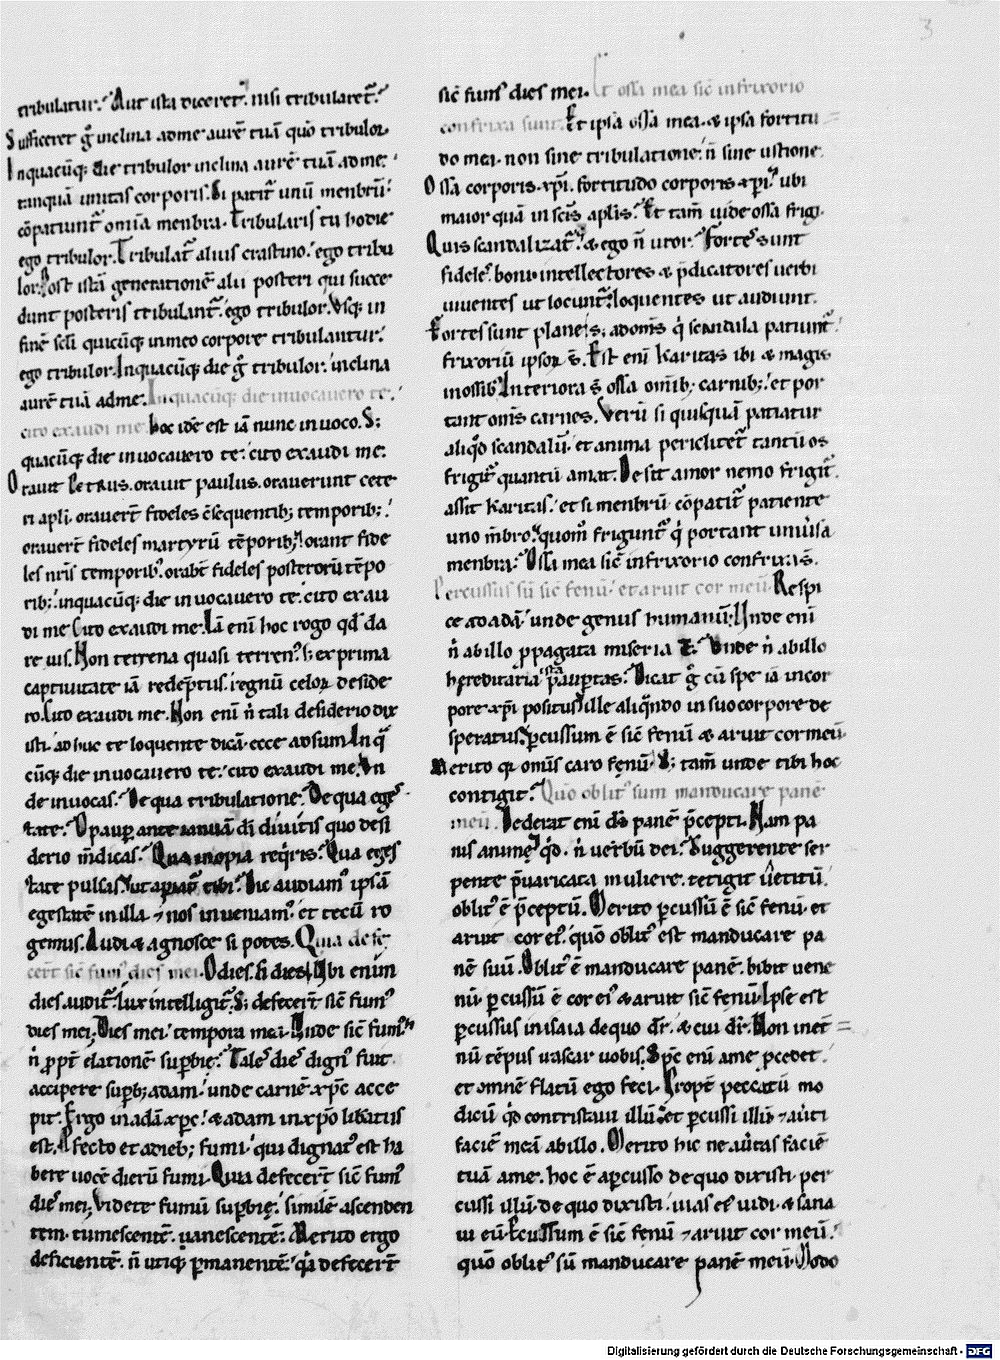 3
tribulatur. Aut ista diceret. nisi tribularet̃.
Sufficeret g̃ inclina ad me aurẽ tuã quõ tribulor
In quacũq; die tribulor inclina aurẽ tuã ad me.
tanquã unitas corporis. Si patit̃ unũ menbrũ.
cõpatiunt̃ omĩa menbra. Tribularis tu hodie
ego tribulor. Tribulat̃ alius crastino. ego tribu
lor. Post istã generationẽ alii posteri qui succe
dunt posteris tribulant̃. ego tribulor. Usq; in
finẽ scl̃i quicũq; in meo corpore tribulantur.
ego tribulor. In quacũq; die g̃ tribulor. inclina
aurẽ tuã ad me. In quacũq; die inuocauero te.
cito exaudi me. hoc idẽ est iã nunc inuoco. S;
quacũq; die inuocauero te. cito exaudi me.
Orauit Petrus. orauit paulus. orauerunt cete
ri apl̃i. orauer̃t fideles c̃sequentib; temporib;.
orauer̃t fideles martyrũ tẽporib;. orant fide
les nr̃is temporib᾽. orabt̃ fideles posterorũ tẽpo
rib;. in quacũq; die inuocauero te. cito exau
di me. Cito exaudi me. Iã enĩ hoc rogo qđ da
re uis. Non terrena quasi terren᾽. s; ex prima
captiuitate iã redẽptus. regnũ celoꝝ deside
ro. Cito exaudi me. Non enĩ ñ tali desiderio dix
isti. adhuc te loquente dicã. ecce adsum. In q̃
cũq; die inuocauero te. cito exaudi me. Un
de inuocas. De qua tribulatione. De qua eges
tate. O paup ante ianuã dĩ diuitis quo desi
derio m̃dicas. Qua inopia req̃ris. Qua eges
tate pulsas. ut apiat̃ tibi. Dic audiam᾽ ipsã
egestatẽ in illa ⁊ nos inueniam᾽. et tecũ ro
gemus. Audi & agnosce si potes. Quia defe
cer̃t sic̃ fum᾽ dies mei. O dies. si dies. Ubi enim
dies audit̃. lux intelligit̃. S; defecer̃t sic̃ fum᾽
dies mei. Dies mei. tempora mea. Unde sic̃ fum᾽.
ñ ꝓpt̃ elationẽ suꝑbię. Tale᾽ die᾽ dign᾽ fuit
accipere suꝑb; adam. unde carnẽ xp̃c acce
pit. Ergo in adã xp̃c. & adam in xp̃o libatus
est. A fecto et a dieb; fumi. qui dignat᾽ est ha
bere uocẽ dierũ fumi. Quia defecer̃t sic̃ fum᾽
die᾽ mei. Videte fumũ suꝑbię. similẽ ascenden
tem. tumescentẽ. uanescentẽ. Merito ergo
deficientẽ. ñ utiq; ꝑmanentẽ. q̃a defecer̃t
sic̃ fum᾽ dies mei. Et ossa mea sic̃ in frixorio
confrixa sunt. Et ipsa ossa mea. & ipsa fortitu
do mei. non sine tribulatione. ñ sine ustione.
Ossa corporis xp̃i. fortitudo corporis xp̃i. ubi
maior quã in sc̃is aplĩs. Et tam̃ uide ossa frigi.
Quis scandalizat̃. & ego ñ uror. Fortes sunt
fideles boni intellectores & p̃dicatores uerbi
uiuentes ut locunt̃. loquentes ut audiunt.
Fortes sunt plane is. ad om̃s q̃ scandala patiunt̃.
frixoriũ ipsoꝝ ẽ. Est enĩ karitas ibi & magis
in ossib᾽. Interiora s̃ ossa omĩb; carnib;. et por
tant om̃s carnes. Verũ si quisquã patiatur
aliqđ scandalũ. et anima periclitet̃. tantũ os
frigit̃ quantũ amat. Desit amor nemo frigit̃.
assit karitas. et si menbrũ cõpatit̃ patiente
uno m̃bro. quom᾽ frigunt̃ q̃ portant uniũsa
menbra. Ossa mea sic̃ in frixorio confrixa s̃.
Percussus sũ sic̃ fenũ. et aruit cor meũ. Respi
ce ad adã. unde genus humanũ. Unde enĩ
ñ ab illo ꝓpagata miseria. Unde ñ ab illo
hereditaria ista pauꝑtas. Dicat g̃ cũ spe iã in cor
pore xp̃i positus. ille aliqñdo in suo corpore de
speratus. ꝑcussum ẽ sic̃ fenũ & aruit cor meũ.
Merito q̃ omĩs caro fenũ. S; tam̃ unde tibi hoc
contigit. Quõ oblit᾽ sum manducare panẽ
meũ. Dederat enĩ dš panẽ p̃cepti. Nam pa
nis animę qđ. ñ uerbũ dei. Suggerente ser
pente p̃uaricata muliere. tetigit ũetitũ.
oblit᾽ ẽ p̃ceptũ. Merito ꝑcussũ ẽ sic̃ fenũ. et
aruit cor ei᾽. quõ oblit᾽ est manducare pa
nẽ suũ. Oblit᾽ ẽ manducare panẽ. bibit uene
nũ. ꝑcussũ ẽ cor ei᾽ & aruit sic̃ fenũ. Ipse est
ꝑcussus in isaia de quo dr̃. & cui dr̃. Non inet̃
nũ tẽpus irascar uobis. Spc̃ enĩ a me ꝓcedet.
et omnẽ flatũ ego feci. Propt̃ peccatũ mo
dicũ qđ contristaui illũ. et ꝑcussi illũ ⁊ aũti
faciẽ meã ab illo. Merito hic ne aũtas faciẽ
tuã a me. hoc ẽ a ꝑcusso de quo dixisti per
cussi illũ. de quo dixisti. uias ei᾽ uidi & sana
ui eũ. Percussum ẽ sic̃ fenũ ⁊ aruit cor meũ.
quõ oblit᾽ sũ manducare panẽ meũ. Modo
Digitalisierung gefördert durch die Deutsche Forschungsgemeinschaft - DFG